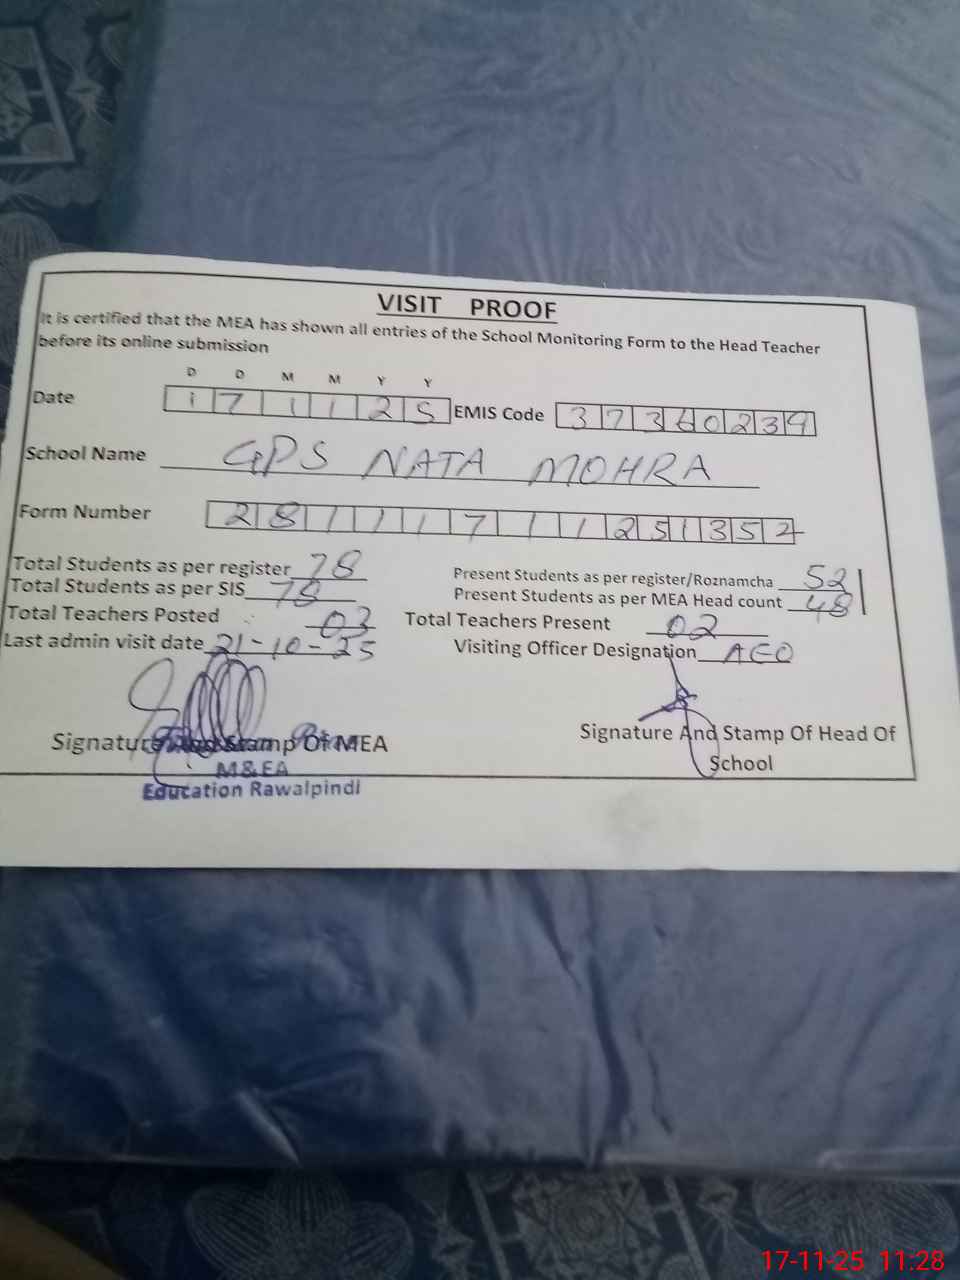 VISIT PROOF
It is certified that the MEA has shown all entries of the School Monitoring Form to the Head Teacher
before its online submission
D D M M Y Y
Date 1 7 1 1 2 5 EMIS Code 3 7 3 6 0 2 3 9
School Name GPS NATA MOHRA
Form Number 2 8 1 1 1 7 1 1 2 5 1 3 5 2
Total Students as per register 78
Present Students as per register/Roznamcha 52
Total Students as per SIS 78
Present Students as per MEA Head count 48
Total Teachers Posted 03
Total Teachers Present 02
Last admin visit date 21-10-25
Visiting Officer Designation AEO
Signature And Stamp Of MEA
Signature And Stamp Of Head Of
School
M&EA
Education Rawalpindi
17-11-25 11:28